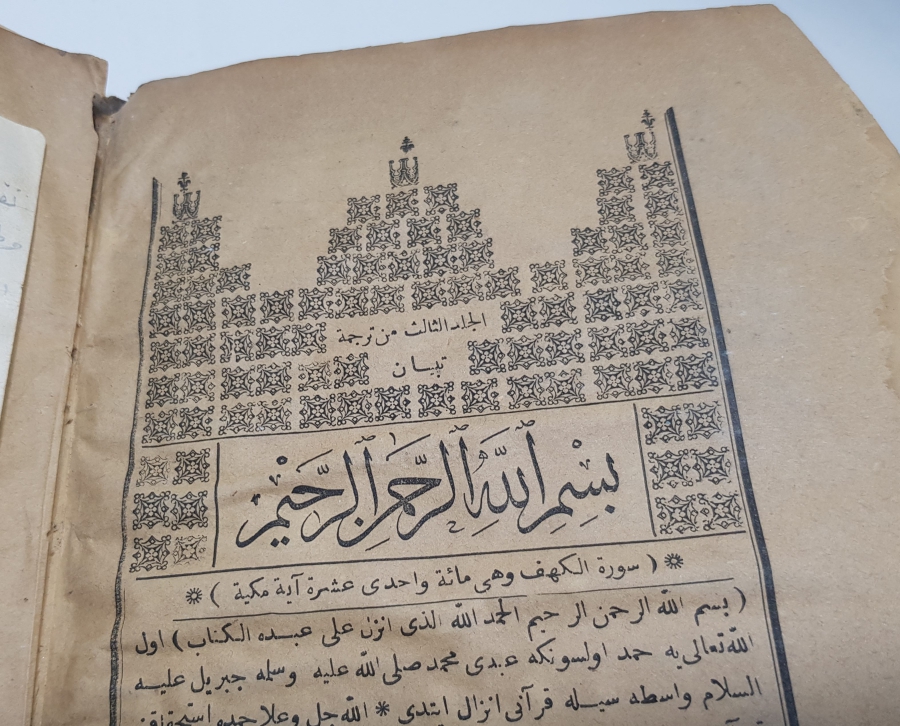 الجلد الثالث من ترجمة
تبيان
بِسْمِ اللَّهِ الرَّحْمَنِ الرَّحِيْمِ
❋ ( سورة الكهف وهى مائة واحدى عشرة آية مكية ) ❋
( بسم الله الرحمن الرحيم الحمد الله الذى انزل على عبده الكتاب ) اول
الله تعالى يه حمد اولسونكه عبدى محمد صلى الله عليه وسلمه جبريل عليه
السلام واسطه سيله قرآنى انزال ايتدى ❋ الله جل وعلا حمده